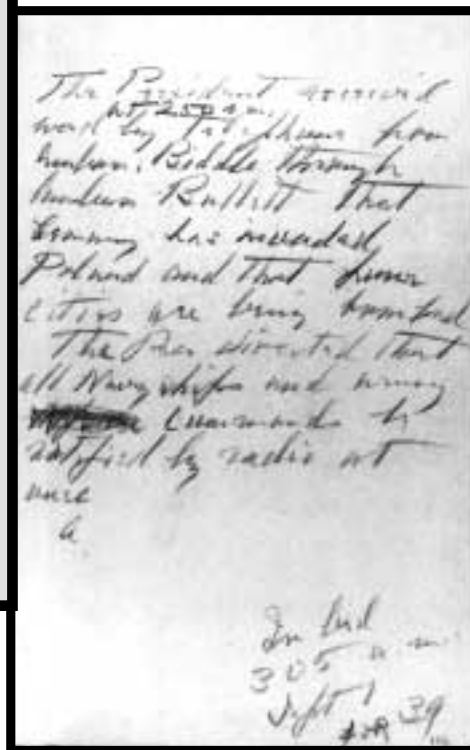 The President received
at 2:50 a.m.
word by telephone from
Biddle through
Bullitt that
Germany has invaded
Poland and that four
cities are being bombed
The Pres directed that
all Navy ships and army
commands be
notified by radio at
once
In bed
3 05 a m
Sept 1 39
FDR